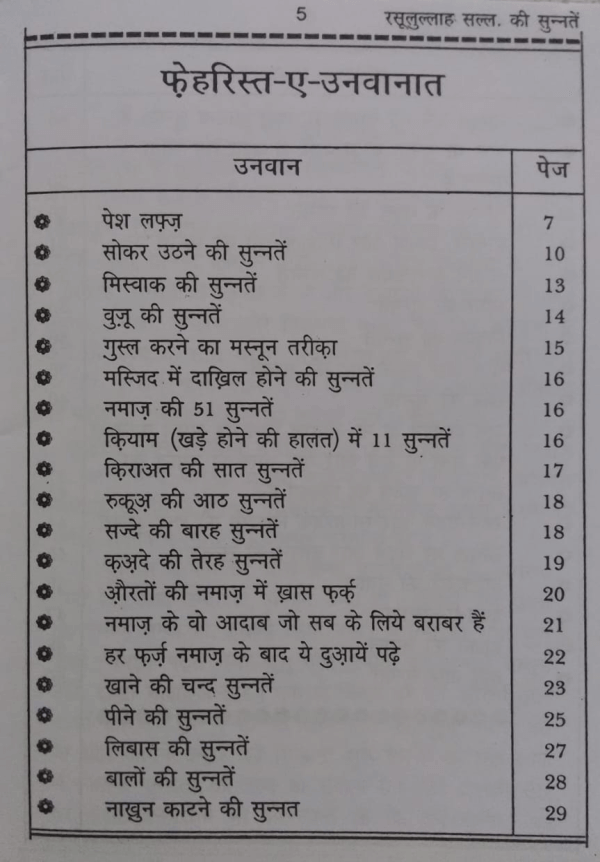 5 रसूलुल्लाह सल्ल. की सुन्नतें
फ़ेहरिस्त-ए-उनवानात
उनवान पेज
पेश लफ़्ज़ 7
सोकर उठने की सुन्नतें 10
मिस्वाक की सुन्नतें 13
वुज़ू की सुन्नतें 14
ग़ुस्ल करने का मस्नून तरीक़ा 15
मस्जिद में दाख़िल होने की सुन्नतें 16
नमाज़ की 51 सुन्नतें 16
क़ियाम (खड़े होने की हालत) में 11 सुन्नतें 16
क़िराअत की सात सुन्नतें 17
रुकूअ़ की आठ सुन्नतें 18
सज्दे की बारह सुन्नतें 18
क़अ़दे की तेरह सुन्नतें 19
औ़रतों की नमाज़ में ख़ास फ़र्क़ 20
नमाज़ के वो आदाब जो सब के लिये बराबर हैं 21
हर फ़र्ज़ नमाज़ के बाद ये दुआ़यें पढ़े 22
खाने की चन्द सुन्नतें 23
पीने की सुन्नतें 25
लिबास की सुन्नतें 27
बालों की सुन्नतें 28
नाख़ुन काटने की सुन्नत 29